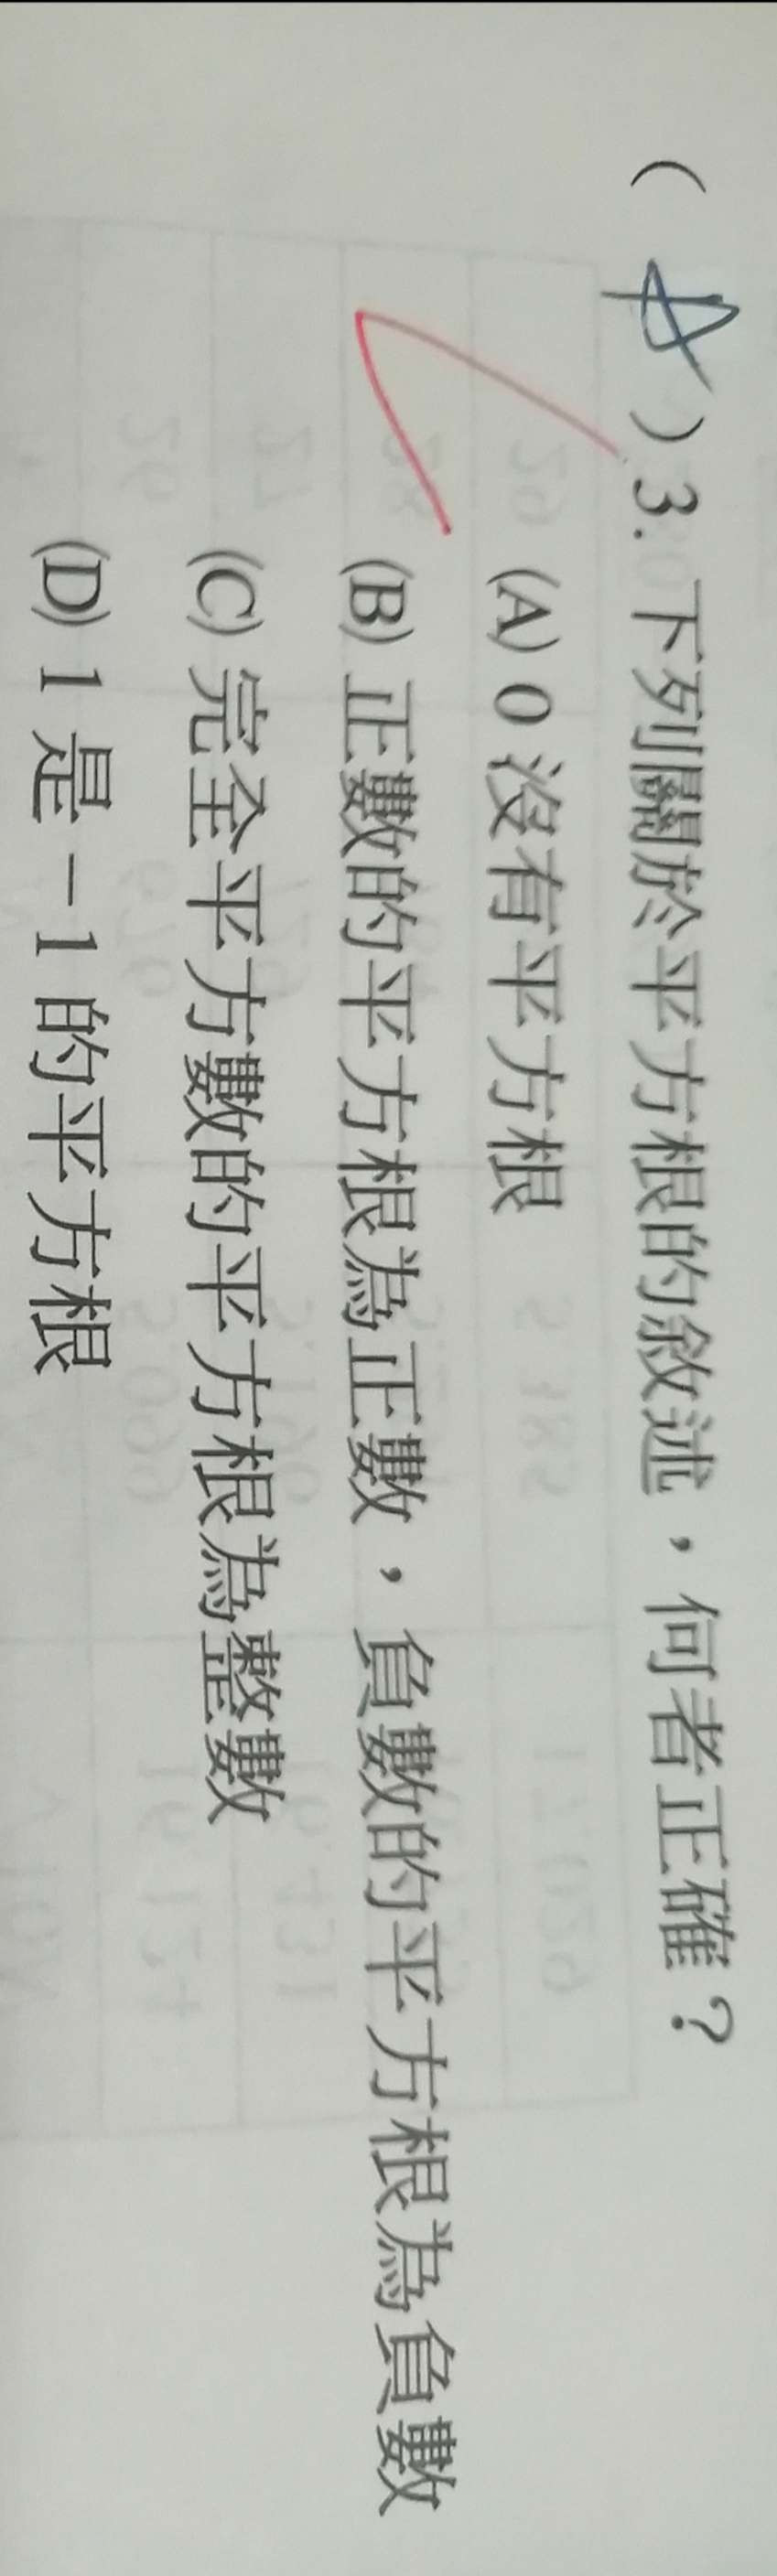 ( A ) 3. 下列關於平方根的敘述，何者正確？
(A) 0 沒有平方根
(B) 正數的平方根為正數，負數的平方根為負數
(C) 完全平方數的平方根為整數
(D) 1 是 -1 的平方根